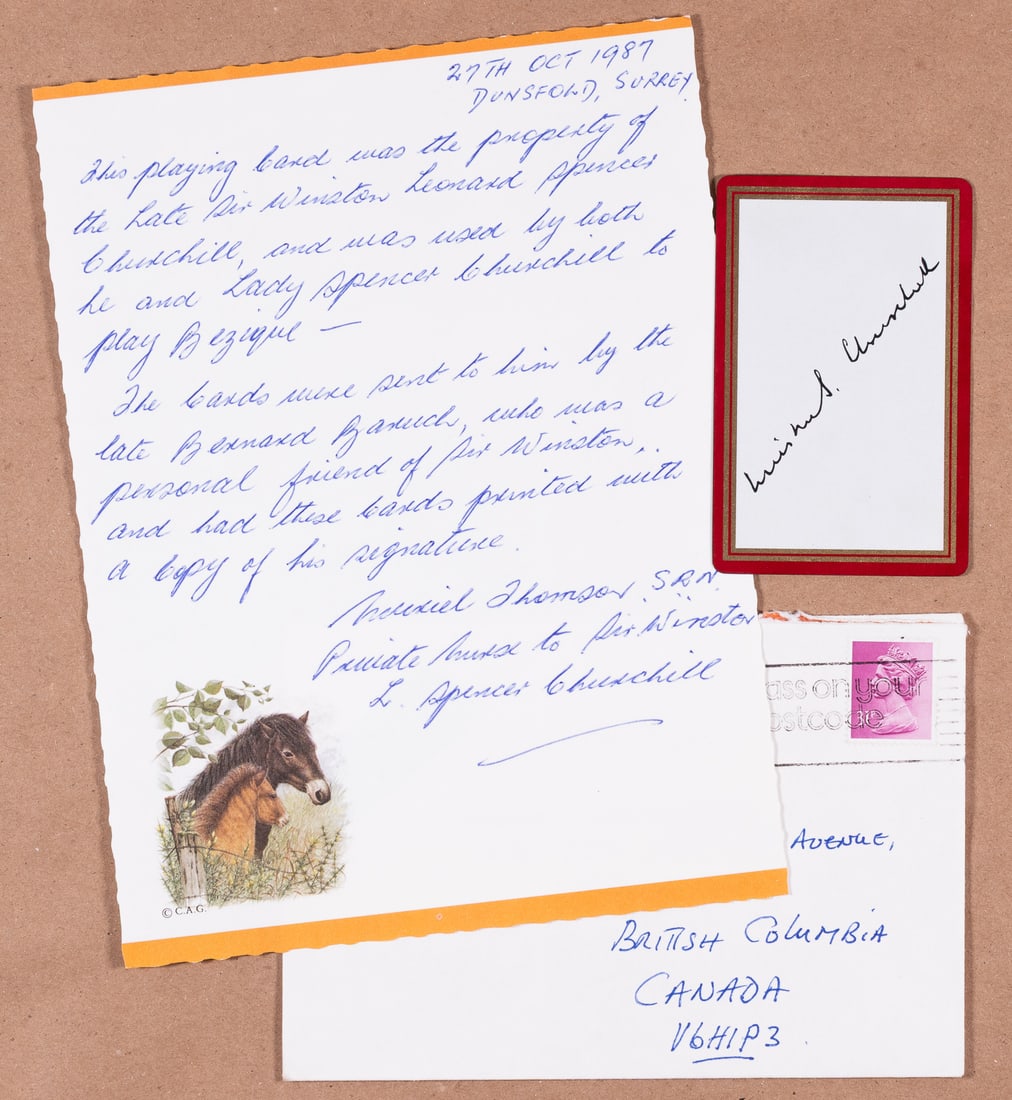 27TH OCT 1987
DUNSFOLD, SURREY
This playing card was the property of
the Late Sir Winston Leonard Spencer
Churchill, and was used by both
he and Lady Spencer Churchill to
play Bezique —
The cards were sent to him by the
late Bernard Baruch, who was a
personal friend of Sir Winston,
and had these cards printed with
a copy of his signature.
Muriel Thomson, S.R.N.
Private Nurse to Sir Winston
L. Spencer Churchill
© C.A.G.
Winston S. Churchill
ass on your
ostcode
AVENUE,
BRITISH COLUMBIA
CANADA
V6H1P3